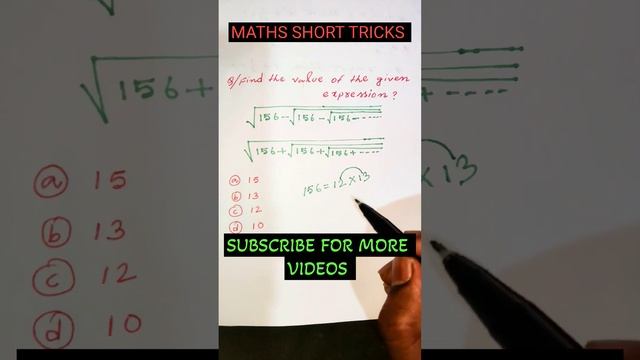 MATHS SHORT TRICKS
Q/ Find the value of the given
expression?
√156-√156-√156-----
√156+√156+√156+-----
ⓐ 15
ⓑ 13
ⓒ 12
ⓓ 10
156=12×13
SUBSCRIBE FOR MORE
VIDEOS
√156+
-----
×13
ⓐ 15
ⓑ 13
ⓒ 12
ⓓ 10